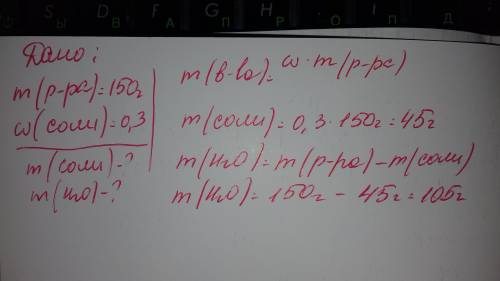 S D F G H I D
Ы В А П Р П Д
Дано:
m(р-ра)=150г
ω(соли)=0,3
m(соли)-?
m(H2O)-?
m(в-ва)=ω·m(р-ра)
m(соли)=0,3·150г=45г
m(H2O)=m(р-ра)-m(соли)
m(H2O)=150г-45г=105г